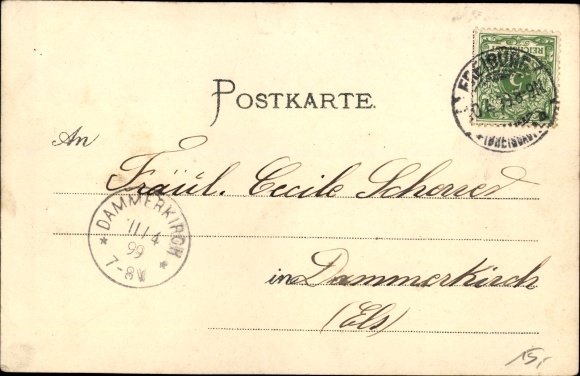 FREIBURG
(BREISGAU)
POSTKARTE.
An
Fräul. Cecile Scherred
DAMMERKIRCH
11/4
99
7-8V
in Dammerkirch
(Els)
15,-